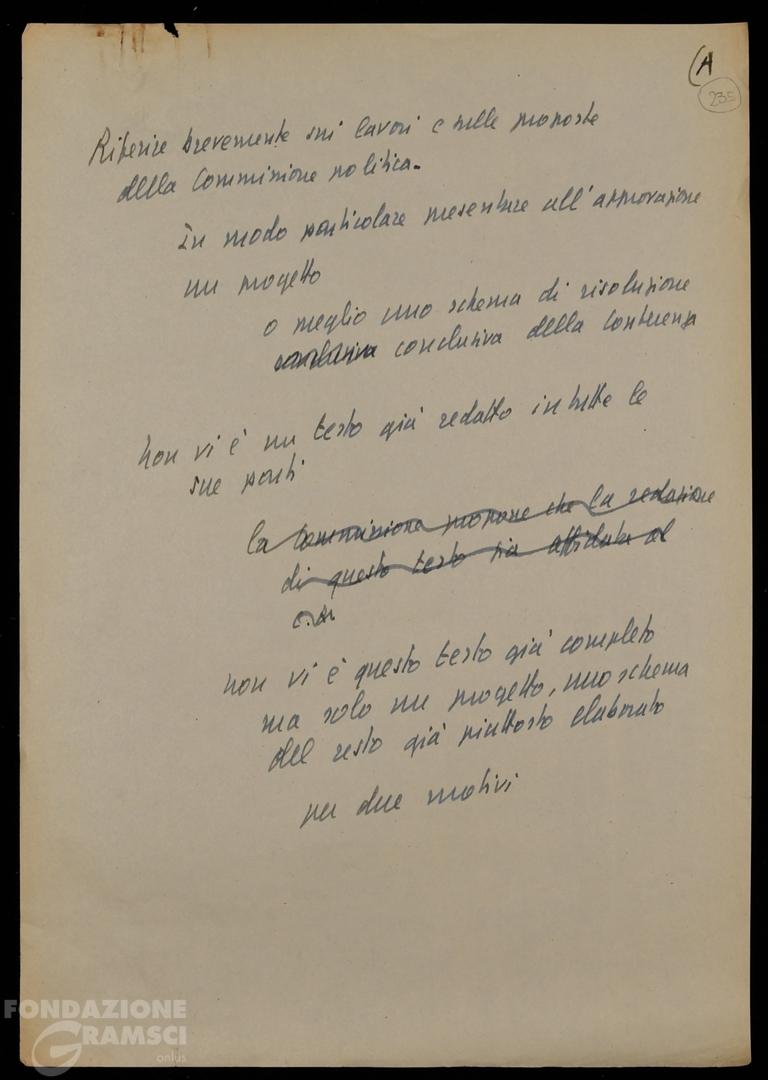 (A
235
Riferire brevemente sui lavori e sulle proposte
della Commissione politica.
In modo particolare presentare all'approvazione
un progetto
o meglio uno schema di risoluzione
conclusiva conclusiva della Conferenza
Non vi è un testo già redatto in tutte le
sue parti
la Commissione propone che la redazione
di questo testo sia affidata al
c.
non vi è questo testo già completo
ma solo un progetto, uno schema
del resto già piuttosto elaborato
per due motivi
FONDAZIONE
GRAMSCI
onlus